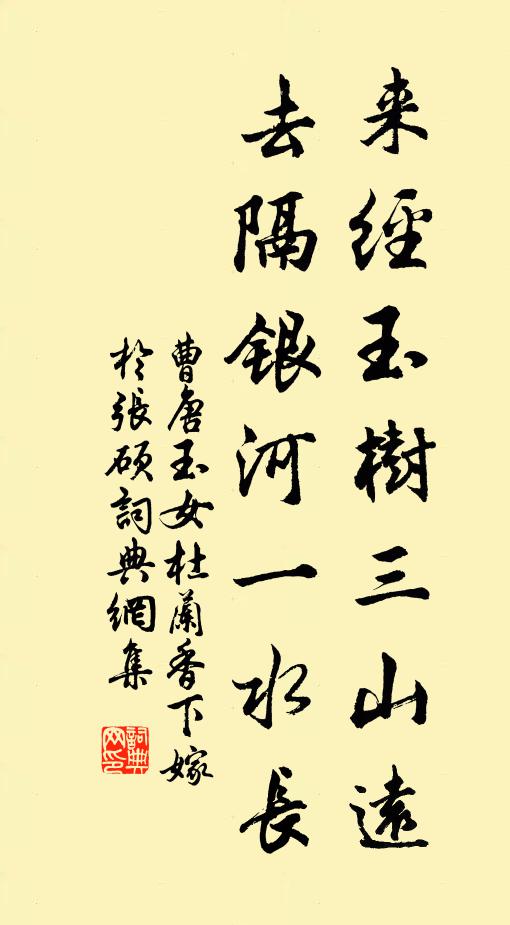 来經玉樹三山遠
去隔銀河一水長
曹唐玉女杜蘭香下嫁
於張碩詞典網集
詞典
网印